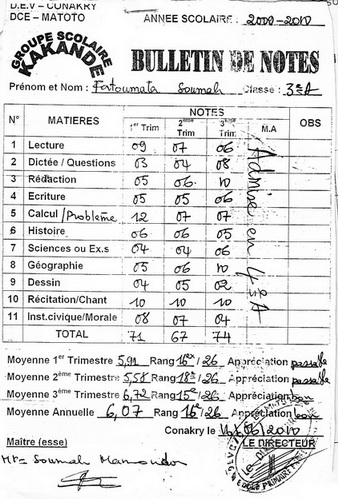 D.E.V - CONAKRY
DCE - MATOTO
ANNEE SCOLAIRE : 2009-2010
GROUPE SCOLAIRE
KAKANDE
BULLETIN DE NOTES
Prénom et Nom : Fatoumata Soumah Classe : 3è A
N° MATIERES NOTES OBS
1er Trim 2ème Trim 3ème Trim M.A
1 Lecture 09 07 06
2 Dictée / Questions 03 04 08
3 Rédaction 05 06 10
4 Ecriture 05 05 06
5 Calcul/Problème 12 07 07
6 Histoire 06 06 05
7 Sciences ou Ex.s 04 04 06
8 Géographie 05 06 10
9 Dessin 04 05 02
10 Récitation/Chant 10 10 10
11 Inst.civique/Morale 08 07 04
TOTAL 71 67 74
Admise en 4è A
Moyenne 1er Trimestre 5,91 Rang 16ex / 26 Appréciation passable
Moyenne 2ème Trimestre 5,58 Rang 18è / 26 Appréciation passable
Moyenne 3ème Trimestre 6,72 Rang 15e / 26 Appréciation bon
Moyenne Annuelle 6,07 Rang 16e/26 Appréciation bon
Conakry le 2010
Maître (esse) LE DIRECTEUR
Mr Soumah Mamadou